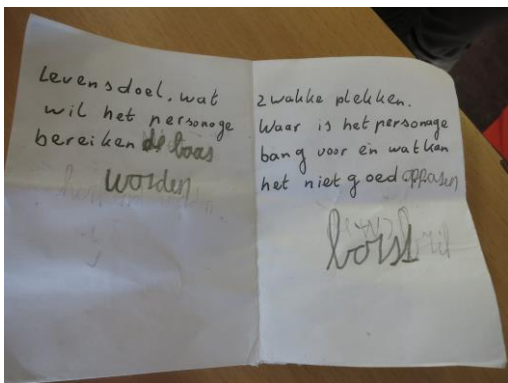 Levensdoel. wat
wil het personage
bereiken de baas
worden
zwakke plekken.
Waar is het personage
bang voor en wat kan
het niet goed oppasen
borst